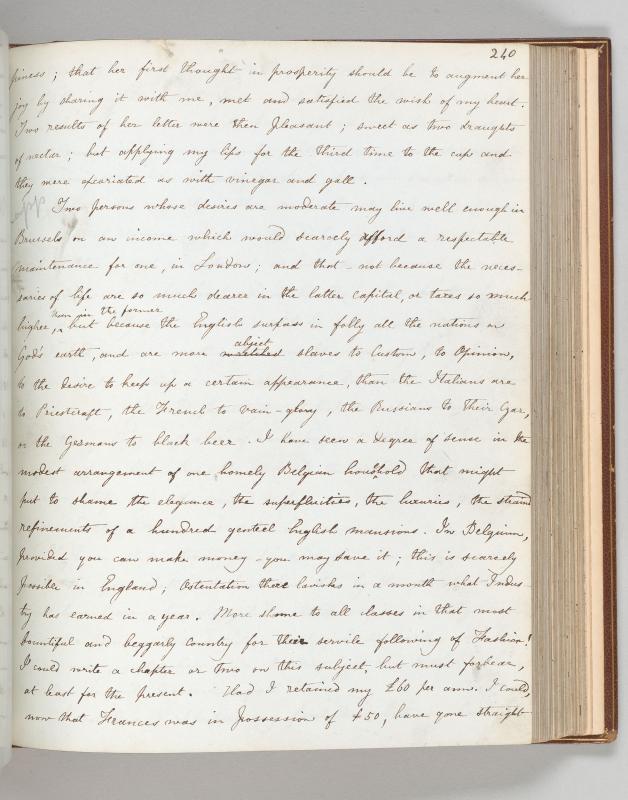 240
piness; that her first thought in prosperity should be to augment her
joy by sharing it with me, met and satisfied the wish of my heart.
Two results of her letter were then pleasant; sweet as two draughts
of nectar; but applying my lips for the third time to the cup and
they were excoriated as with vinegar and gall.
Two persons whose desires are moderate may live well enough in
Brussels on an income which would scarcely afford a respectable
maintenance for one, in London; and that - not because the neces-
saries of life are so much dearer in the latter capital, or taxes so much
than in the former
higher, but because the English surpass in folly all the nations on
abject
God's earth, and are more wretched slaves to Custom, to Opinion,
to the desire to keep up a certain appearance, than the Italians are
to Priestcraft, the French to vain-glory, the Russians to their Czar,
or the Germans to black beer. I have seen a degree of sense in the
modest arrangement of one homely Belgian household that might
put to shame the elegance, the superfluities, the luxuries, the strained
refinements of a hundred genteel English mansions. In Belgium,
provided you can make money - you may save it; this is scarcely
possible in England; Ostentation there lavishes in a month what Indus-
try has earned in a year. More shame to all classes in that most
bountiful and beggarly country for their servile following of Fashion!
I could write a chapter or two on this subject, but must forbear,
at least for the present. Had I retained my £60 per ann. I could,
now that Frances was in possession of £50, have gone straight